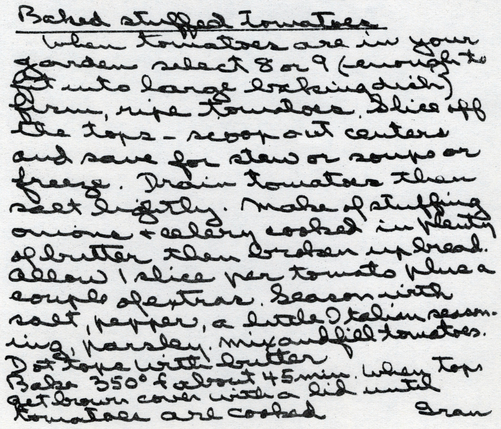 Baked stuffed tomatoes
When tomatoes are in your
garden select 8 or 9 (enough to
fit into large baking dish)
firm, ripe tomatoes. Slice off
the tops - scoop out centers
and save for stew or soups or
freeze. Drain tomatoes then
salt lightly. Make of stuffing
onions + celery cooked in plenty
of butter then broken up bread.
Allow 1 slice per tomato plus a
couple of extras. Season with
salt, pepper, a little Italian season-
ing, parsley. mix and fill tomatoes.
Dot tops with butter
Bake 350° f about 45 min. when tops
get brown cover with a lid until
tomatoes are cooked Gran